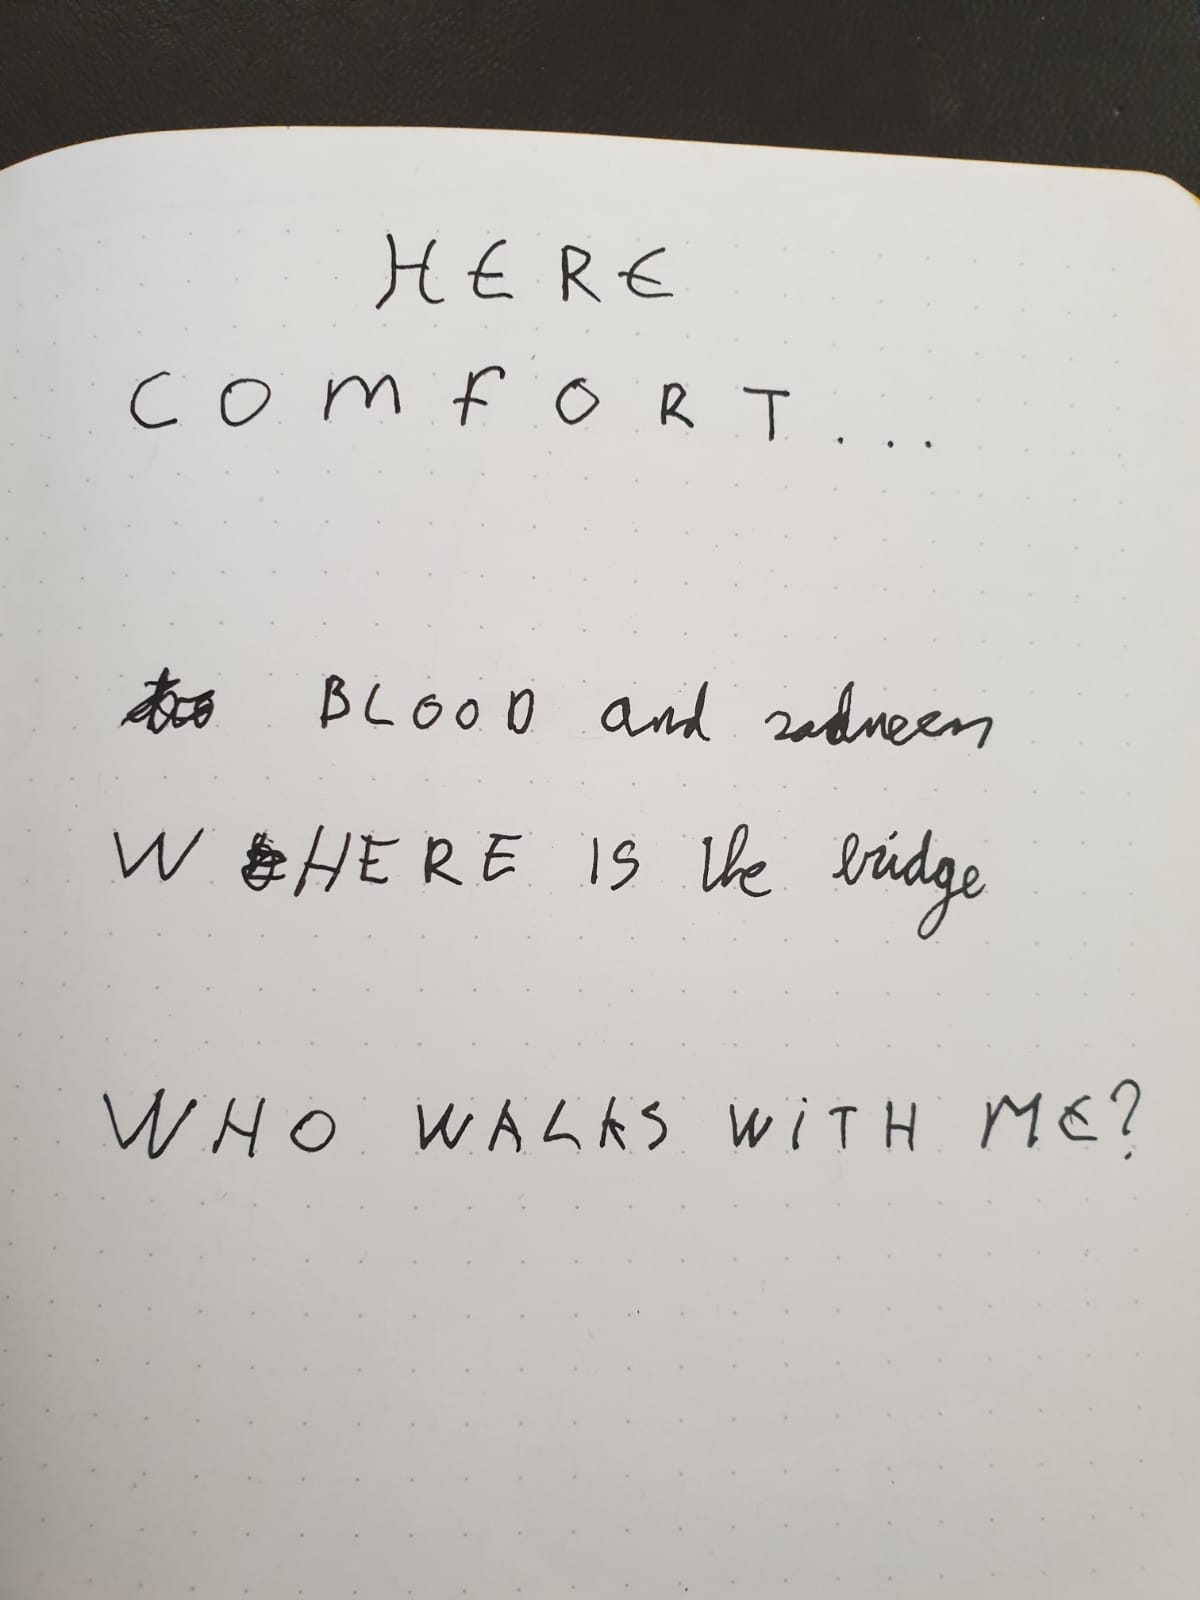 HERE
COMFORT...
BLOOD and sadness
WHERE IS the bridge
WHO WALKS WITH ME?